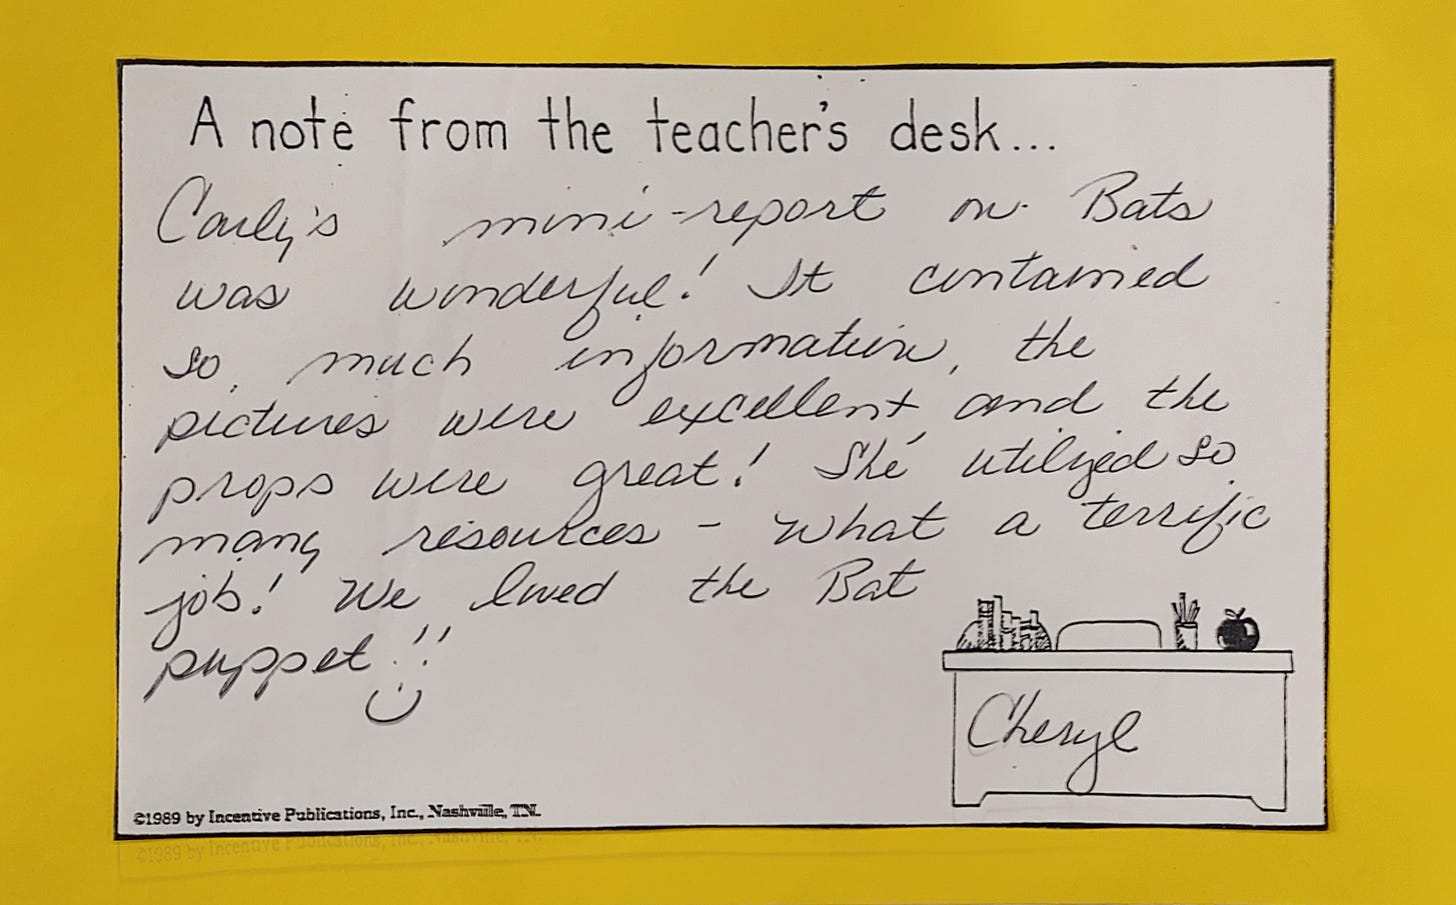 A note from the teacher's desk...
Carly's mini-report on Bats
was wonderful! It contained
so much information, the
pictures were excellent and the
props were great! She utilized so
many resources - what a terrific
job! We loved the Bat
puppet!!
Cheryl
©1989 by Incentive Publications, Inc., Nashville, TN.